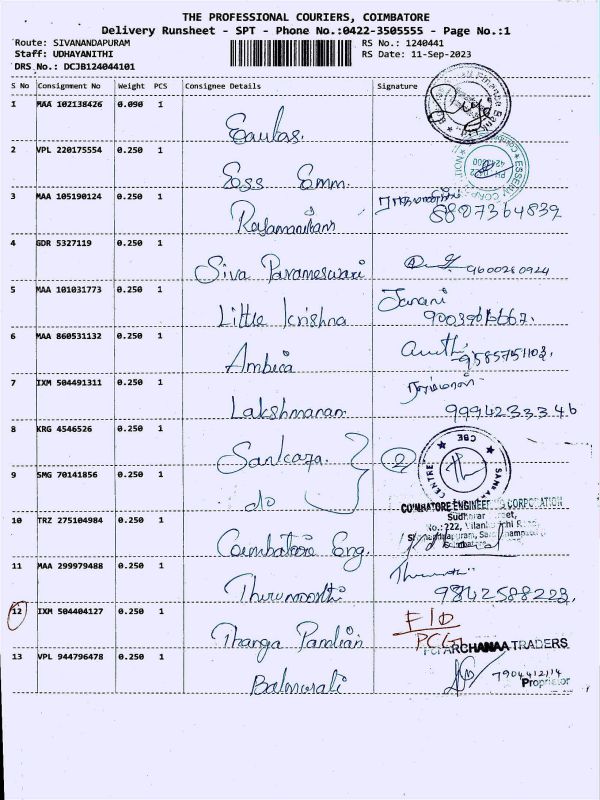 THE PROFESSIONAL COURIERS, COIMBATORE
Delivery Runsheet - SPT - Phone No.:0422-3505555 - Page No.:1
Route: SIVANANDAPURAM RS No.: 1240441
Staff: UDHAYANITHI RS Date: 11-Sep-2023
DRS No.: DCJB124044101
S No Consignment No Weight PCS Consignee Details Signature
1 MAA 102138426 0.090 1
2 VPL 220175554 0.250 1
Ess Emm.
3 MAA 105190124 0.250 1
8807364839
Rajamanikam
4 GDR 5327119 0.250 1
Siva Parameswari 9600280924
5 MAA 101031773 0.250 1 Janani
Little Krishna
6 MAA 860531132 0.250 1
Ambica
7 IXM 504491311 0.250 1
Lakshmanan 9994233346
8 KRG 4546526 0.250 1
Sankara. 2
9 SMG 70141856 0.250 1
do
COIMBATORE ENGINEERING CORPORATION
10 TRZ 275104984 0.250 1
Coimbatore Eng.
11 MAA 299979488 0.250 1
Thirumoorthi 9842588223.
12 IXM 504404127 0.250 1
Thanga Pandian
ARCHANAA TRADERS
13 VPL 944796478 0.250 1
7904412114
Balmurali Proprietor